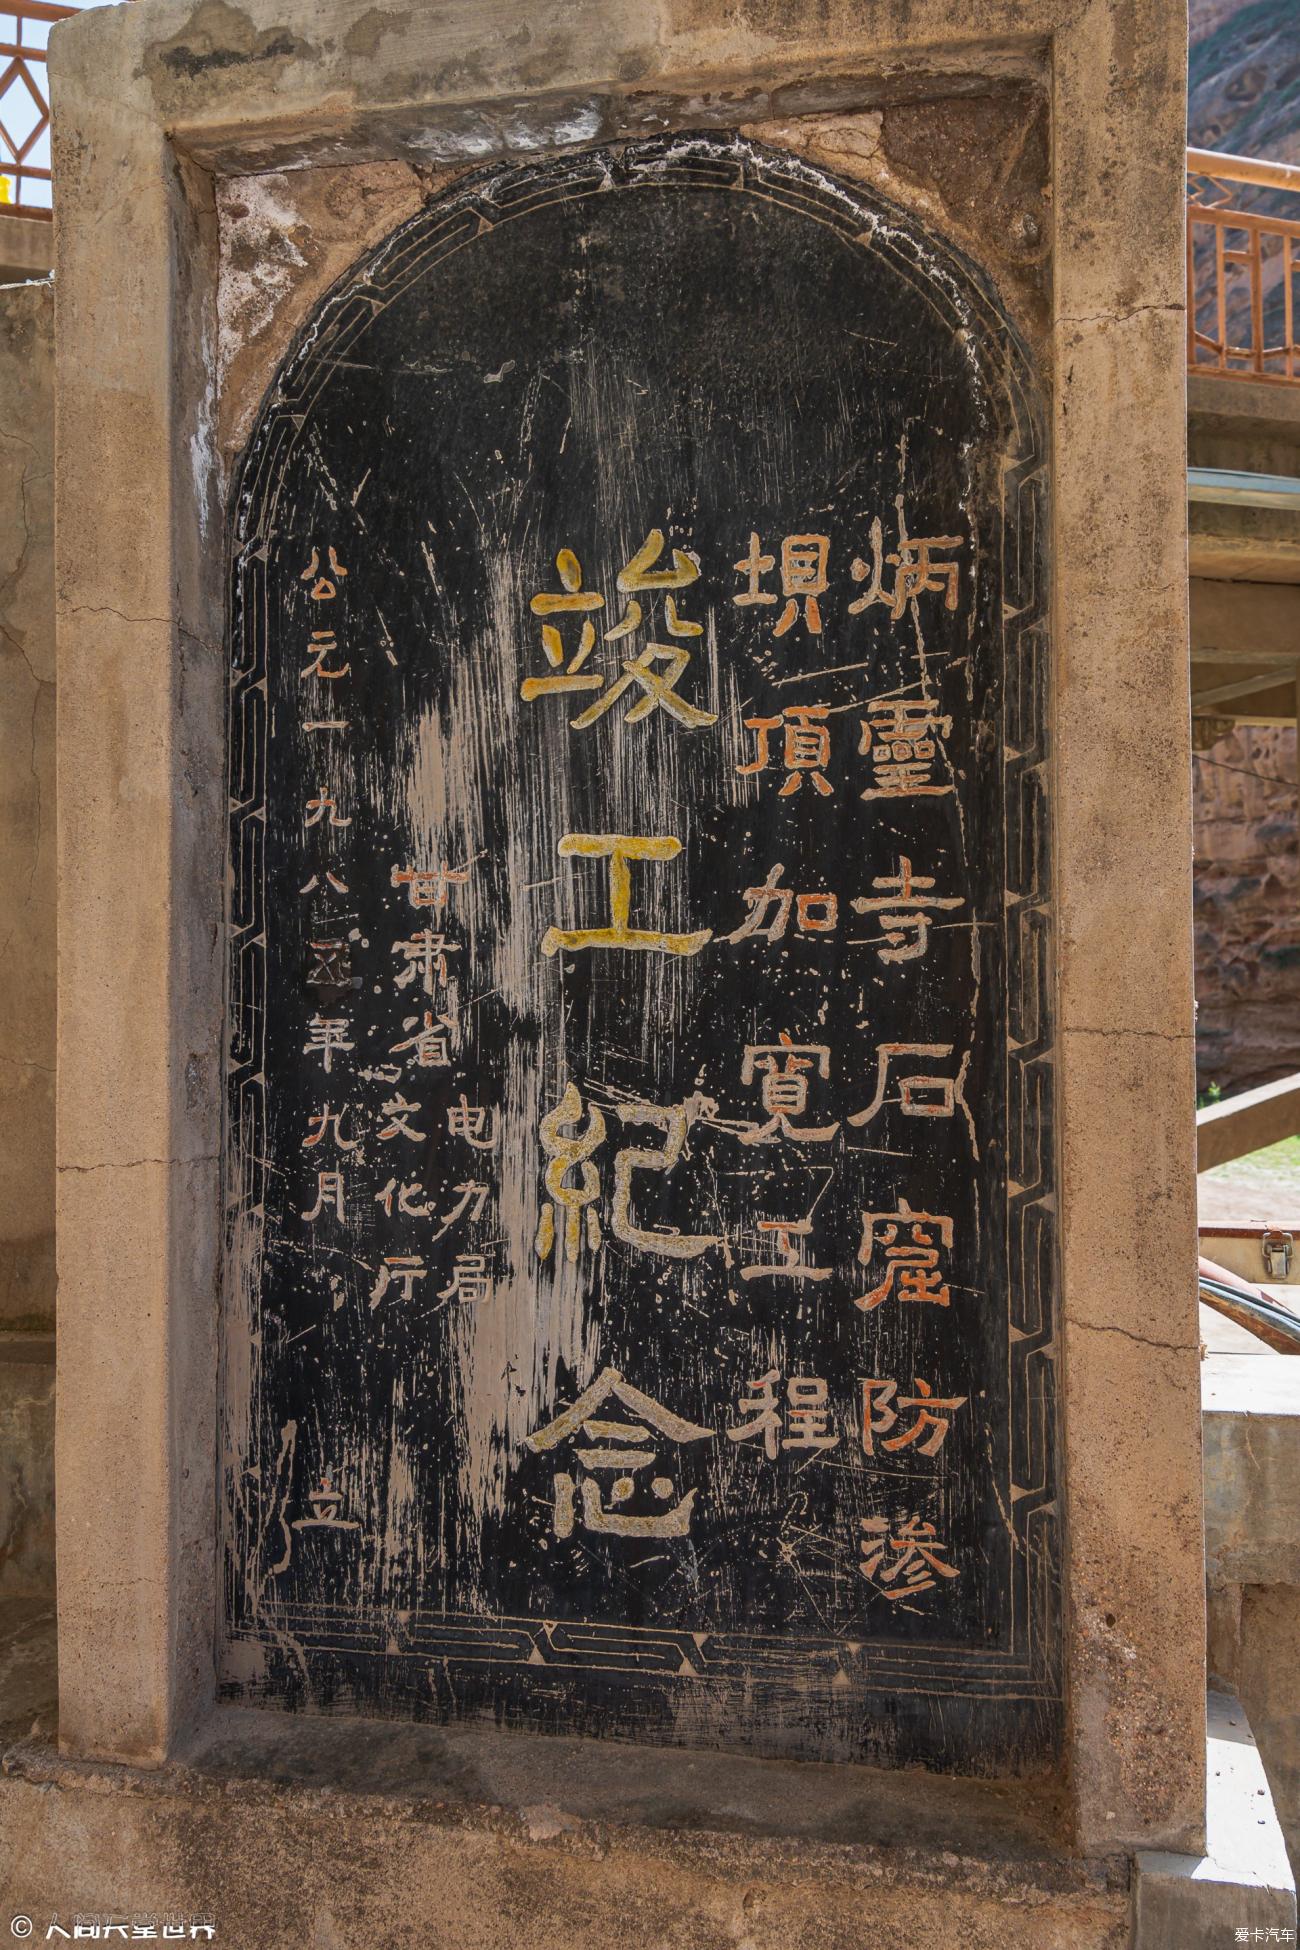 炳靈寺石窟防渗
坝頂加寬工程
竣工紀念
甘肃省电力局
文化厅
公元一九八五年九月 立
© 人间天堂世界
爱卡汽车